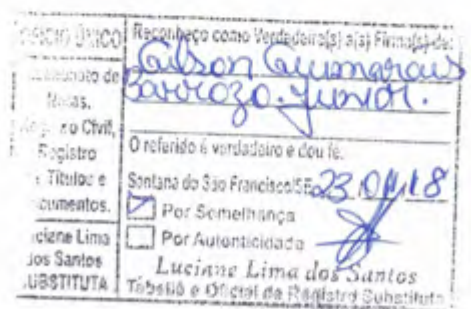 OFÍCIO ÚNICO
Notas,
Registro Civil,
Registro
Títulos e
Documentos.
Luciane Lima
dos Santos
SUBSTITUTA
Reconheço como Verdadeira(s) a(s) Firma(s) de:
Gilson Guimaraes
Barrozo Junior.
O referido é verdadeiro e dou fé.
Santana do São Francisco/SE 23
Por Semelhança
Por Autenticidade
Luciane Lima dos Santos
Tabeliã e Oficial de Registro Substituta